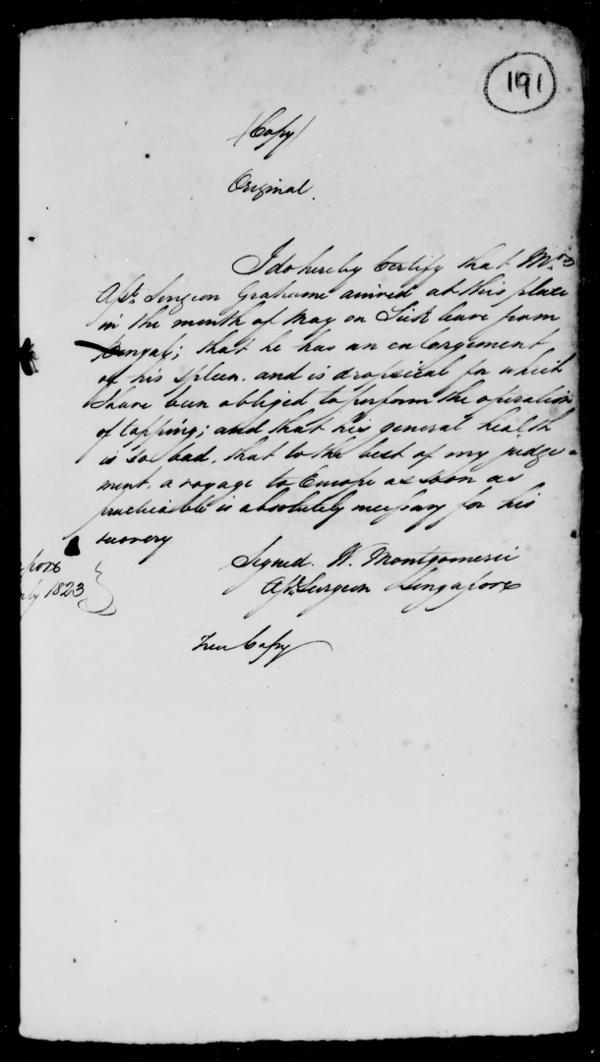 191
(Copy)
Original.
I do hereby Certify that Mr
Asst. Surgeon Grahame arrived at this place
in the month of May on Sick leave from
Bengal; that he has an enlargement
of his spleen. and is dropsical for which
I have been obliged to perform the operation
of tapping; and that his general health
is so bad, that to the best of my judge-
ment, a voyage to Europe as soon as
practicable is absolutely necessary for his
recovery
Signed. W. Montgomerie
Asst. Surgeon Singapore
pore
ly 1823
True Copy